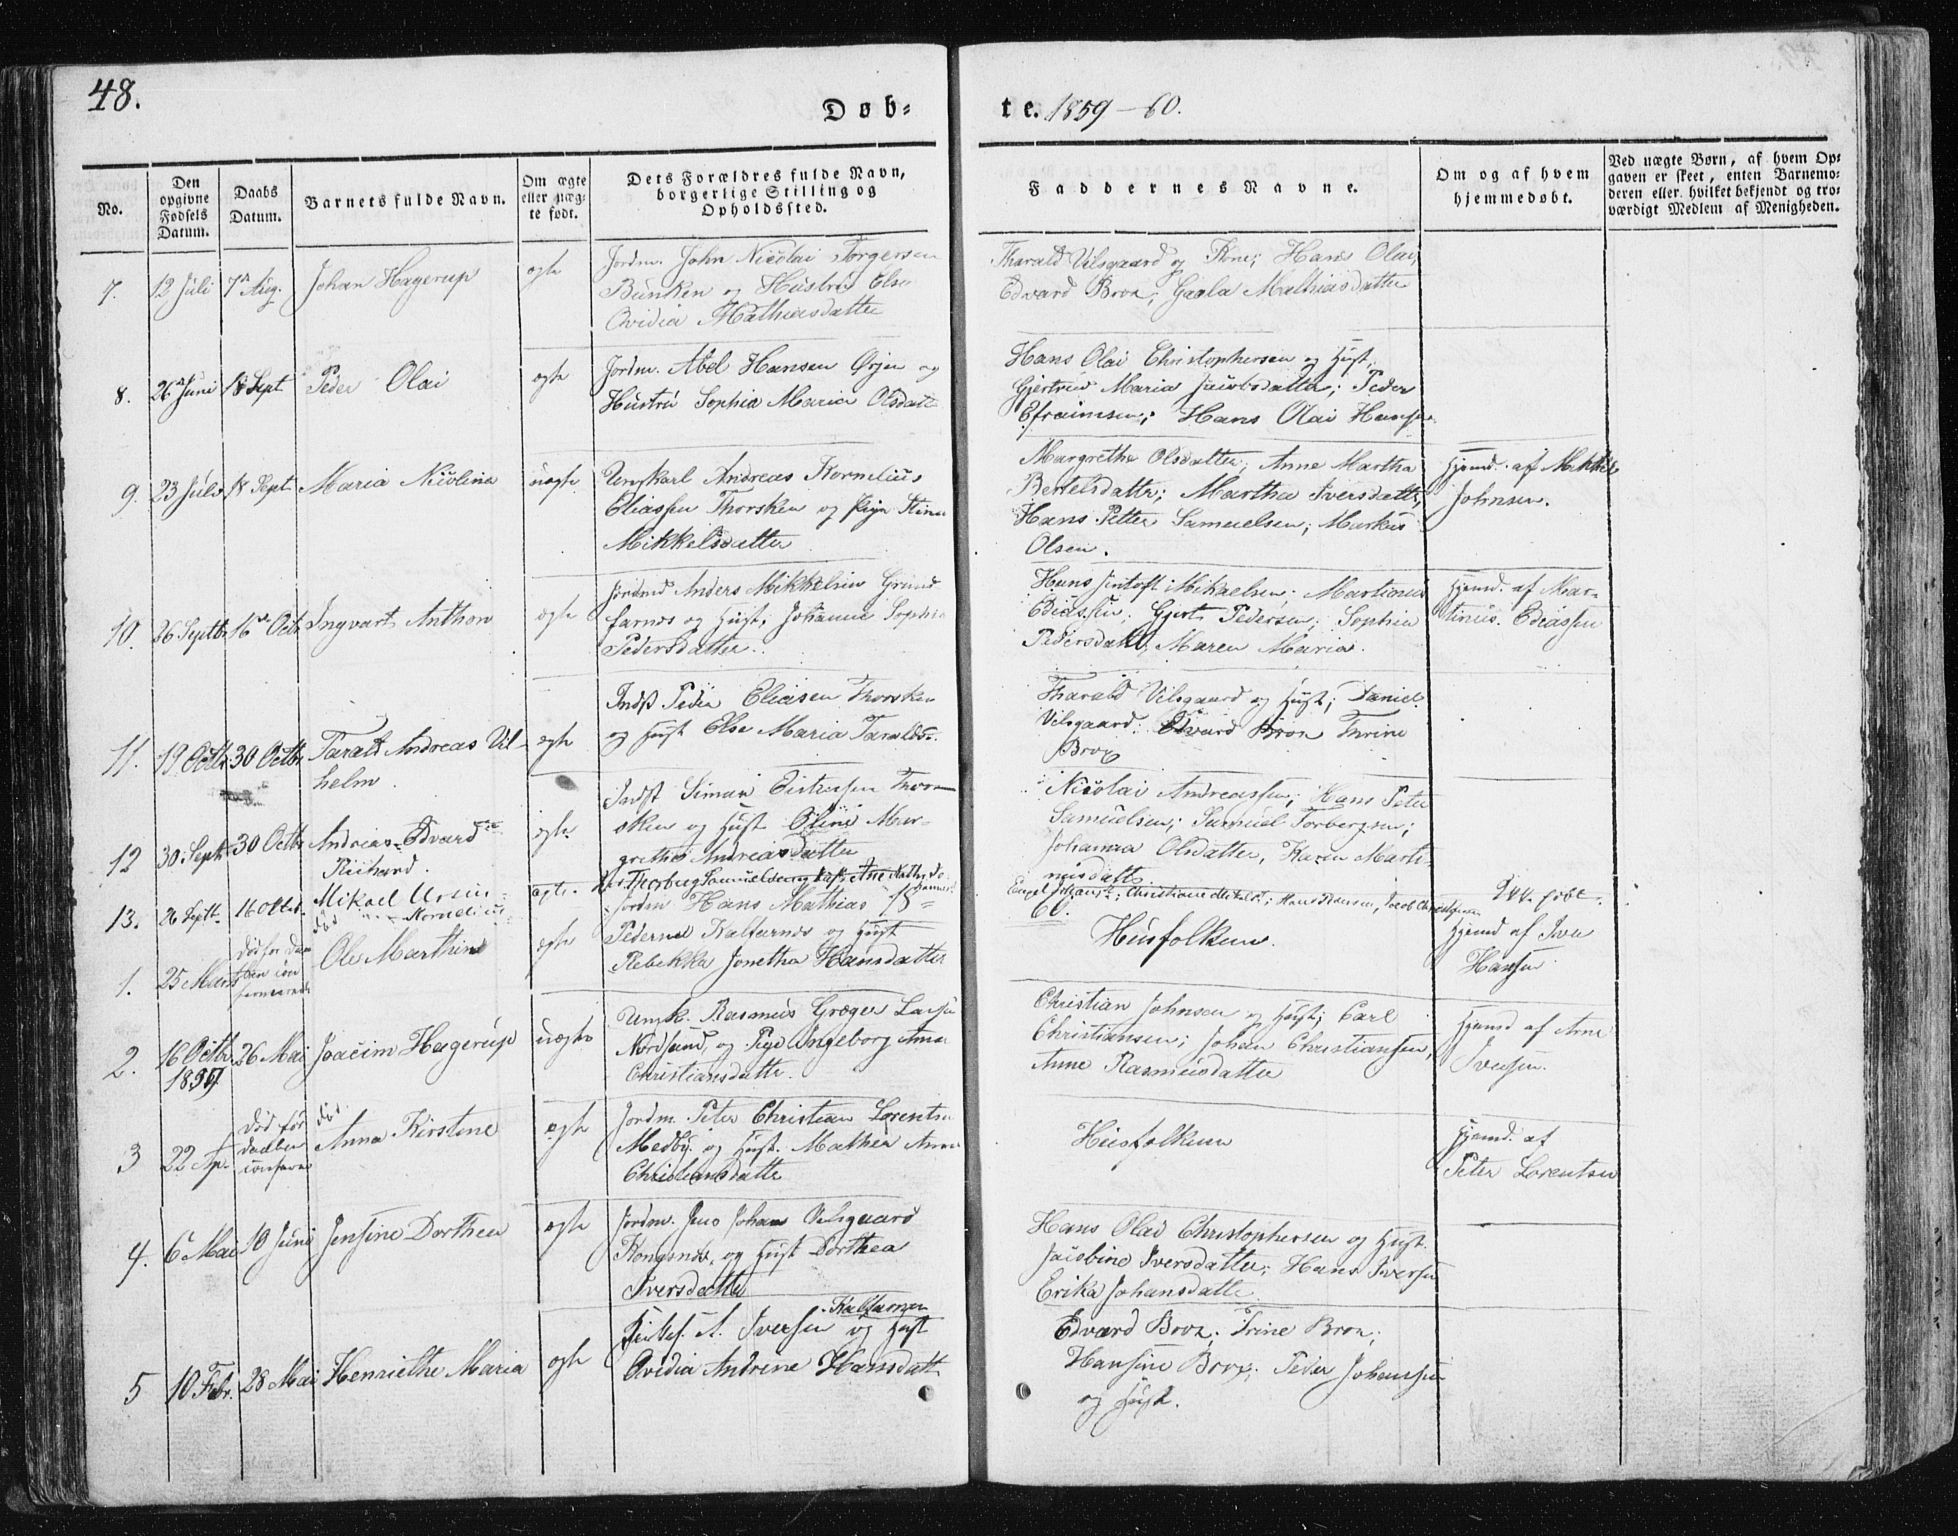 48.
Døb-
te. 1859-60.
No.
Den opgivne Fødsels Datum.
Daabs Datum.
Barnets fulde Navn.
Om ægte eller uægte født.
Dets Forældres fulde Navn, borgerlige Stilling og Opholdssted.
Faddernes Navne.
Om og af hvem hjemmedøbt.
Ved uægte Børn, af hvem Opgaven er skeet, enten Barnemoderen eller hvilket bekjendt og troværdigt Medlem af Menigheden.
7. 12 Juli 7de Aug. Johan Hagerup ægte
Jordm. John Nicolai Torgersen
Bunken og Hustru Else
Ovidia Mathiasdatter
Tharald Vilsgaard og Kone; Hans Olai
Edvard Brox; Mathiasdatter
8. 26 Juni 18 Sept Peder Olai ægte
Jordm. Abel Hansen Ørjen og
Hustru Sophia Maria Olsdatt
Hans Olai Christophersen og Hust.
Gjertrud Maria Jacobsdatter; Peder
Efraimsen; Hans Olai Hansen
9. 23 Juli 18 Sept Maria Nicoline uægte
Ungkarl Andreas Kornelius
Eliassen Thorsken og Pige Stina
Mikkelsdatter
Margrethe Olsdatter; Anne Martha
Bertelsdatter; Martha Iversdatter,
Hans Petter Samuelsen; Markus
Olsen.
Hjemd. af Mikkel
Johnsen.
10. 26 Septbr 16de Octbr Ingvart Anthon ægte
Jordmd Anders Mikkelsen Grund
farnes og Hust. Johanne Sophia
Pedersdatter.
Hans Jentoft Mikaelsen; Martinus
Ediassen; Gjert Pedersen; Sophia
Pedersdatt; Maren Maria.
Hjemd. af Mar-
tinus. Ediassen
11. 19 Octbr 30 Octbr Tarald Andreas Vil-
helm.
ægte
Indst Peder Eliasen Thorsken
og Hust Else Maria Taraldsd.
Tharald Vilsgaard og Hust; Daniel
Vilsgaard. Edvard Brox Trine
Brox
12 30. Septr 30 Octbr Andreas Edvard
Richard.
ægte
Indst Simon Thor-
sken og Hust Oline Mar-
grethe Andreasdatter
Nicolai Andreassen; Hans Peter
Samuelsen; Samuel Torbergsen;
Johanna Olsdatter, Karen Marti-
nusdatt.
13. 26 Septt. 16 Octbr. Mikael Ursin
Kornelius
ægte.
Thorberg Samuelsen og Ane
Christiane ; Hans Hansen, Jacob Christophersen
født.
60.
1. 25 Marts
Død før Daa
ben con
fermerede
død
Ole Marthin
ægte
Jordm Hans Mathias
Pedersen Kalfarnes og Hust
Rebekka Jonetha Hansdatter
Husfolkene.
Hjemd af Iver
Hansen
2. 16 Octbr
1859
26 Mai Joacim Hagerup uægte
Ungk. Rasmus Græger Larsen
Nordsund, og Pige Ingeborg Anna
Christiansdatte.
Christian Johnsen og Hust; Carl
Christiansen; Johan Christiansen,
Anne Rasmusdatter
Hjemd af Arne
Iversen.
3 22 Ap.
Død før
daaben
confereret
død.
Anna Kirstine
ægte
Jordm. Peter Christian Lorentsen
Medby. og Hust. Mathea Anna
Christiansdatte
Husfolkene
Hjemd. af
Peter Lorentsen
4. 6 Mai 10 Juni Jensine Dorthea ægte
Jordm. Jens Johan Vilsgaard
Kongsnes, og Hust Dorthea
Iversdatte
Hans Olai Christophersen og Hust.
Jacobine Iversdatter; Hans Iversen
Erika Johansdatte.
5 10 Febr. 28 Mai Henriethe Maria ægte
Kalfarnes
A. Iversen og Hust
Ovidia Andrine Hansdatt
Edvard Brox; Trine Brox;
Hansine Brox; Peder Johansen
og Hust.